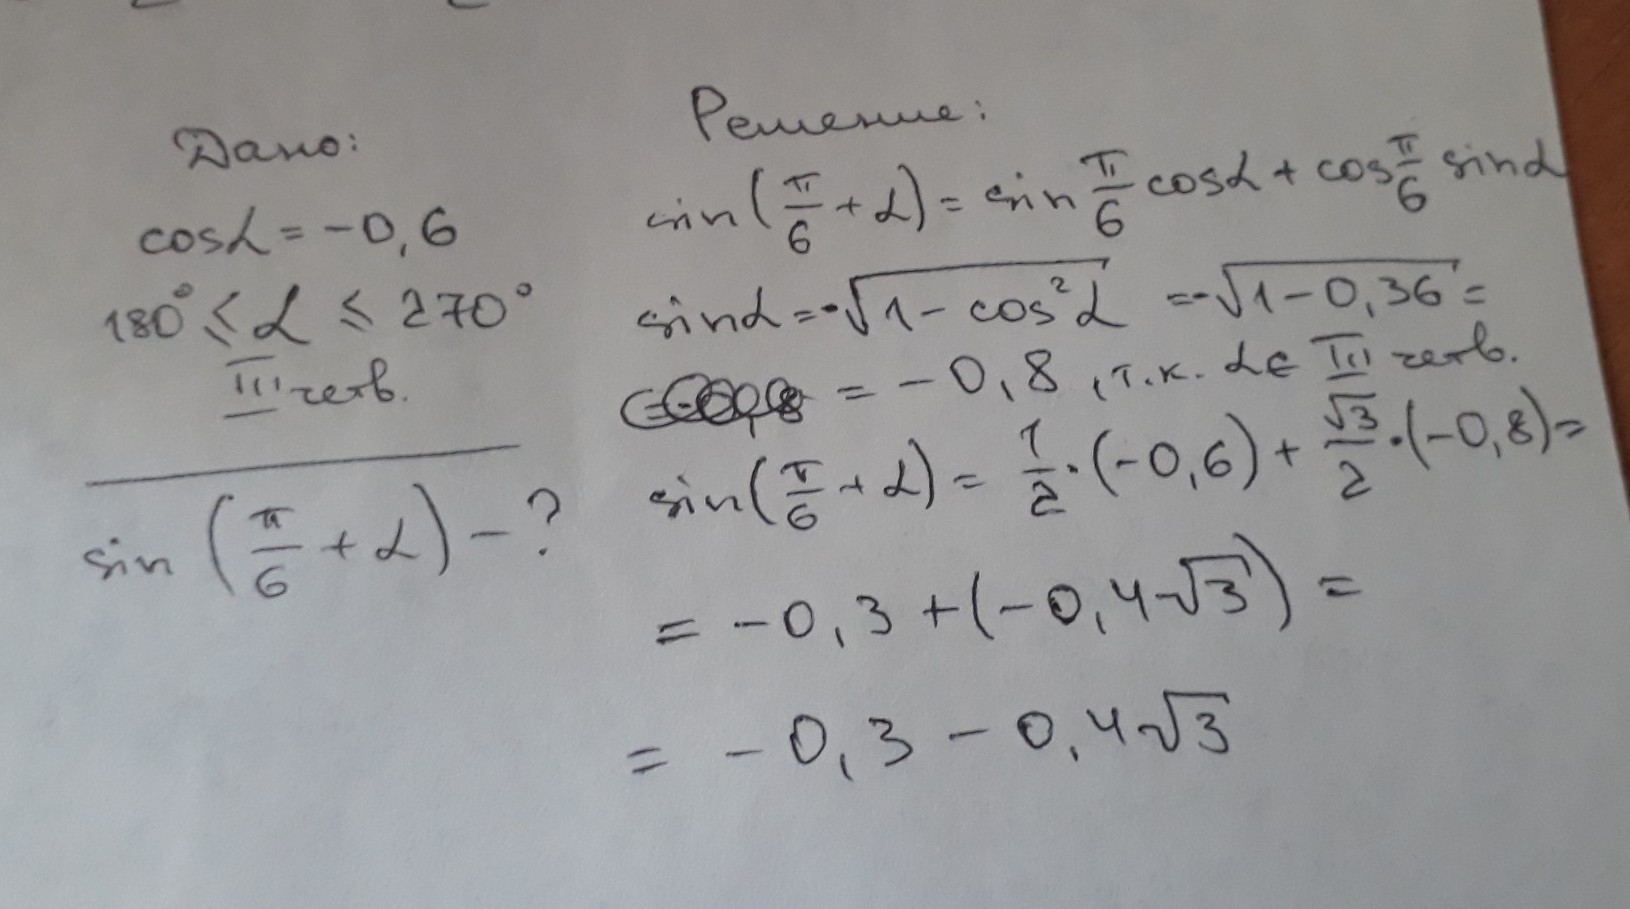 Дано:
cosα = -0,6
180° ≤ α ≤ 270°
III четв.
sin (π/6 + α) - ?
Решение:
sin(π/6 + α) = sin π/6 cosα + cos π/6 sinα
sinα = -√(1 - cos²α) = -√(1 - 0,36) =
= -0,8, т.к. α ∈ III четв.
sin(π/6 + α) = 1/2 · (-0,6) + √3/2 · (-0,8) =
= -0,3 + (-0,4√3) =
= -0,3 - 0,4√3